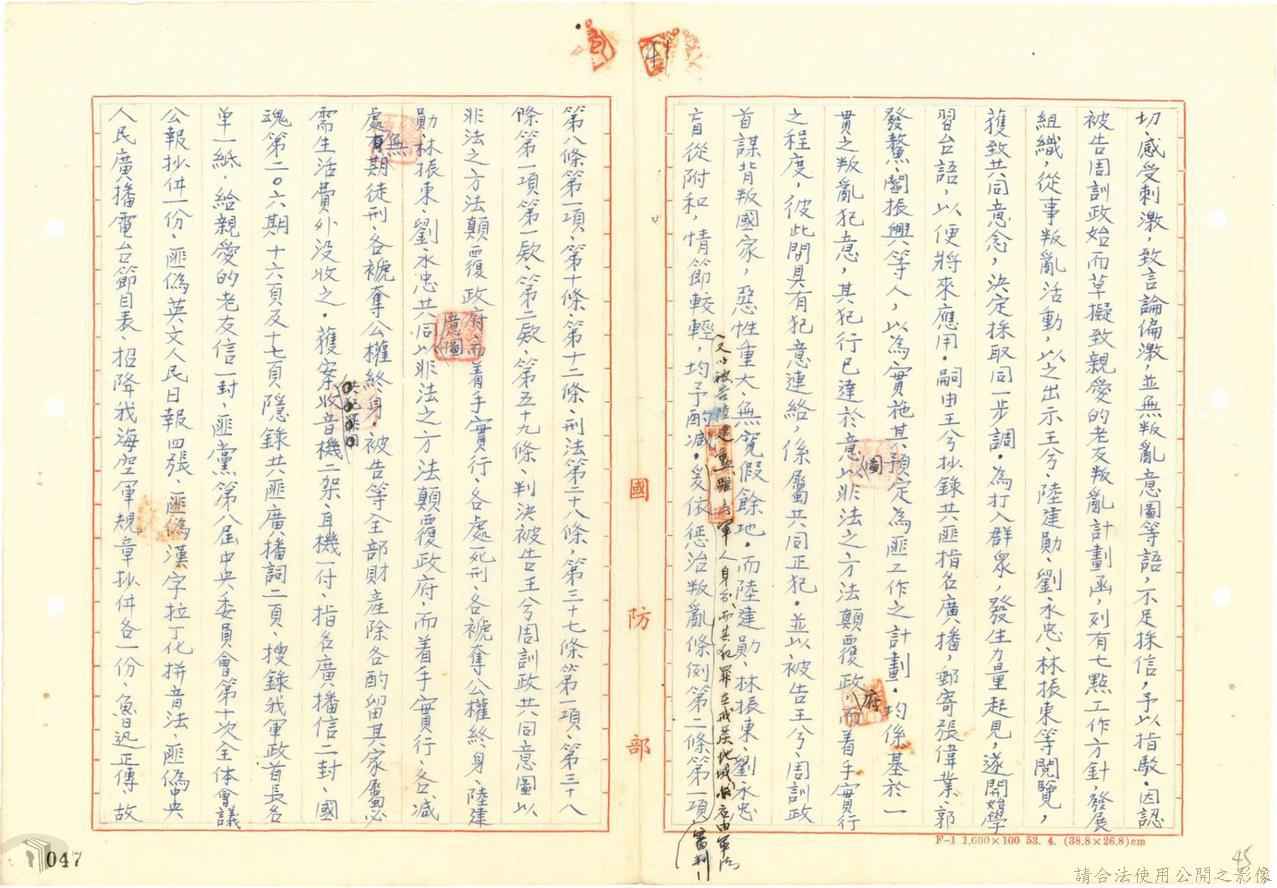 切、感受刺激，致言論偏激，並無叛亂意圖等語，示不足採信，予以指駁。因認
被告周訓政始而草擬致親愛的老友叛亂計劃函，列有七點工作方針，發展
組織，從事叛亂活動，以之出示王兮、陸建勛、劉永忠、林振東等閱覽，
獲致共同意念，決定採取同一步調。為打入群眾，發生力量起見，遂開始學
習台語，以便將來應用。嗣由王兮抄錄共匪指名廣播，郵寄張偉業、郭
發鰲、閻振興等人，以為實施其預定為匪工作之計劃。均係基於一
貫之叛亂犯意，其犯行已達於意圖以非法之方法顛覆政府而着手實行
之程度，彼此間具有犯意連絡，係屬共同正犯。並以被告王兮、周訓政
首謀背叛國家，惡性重大，無寬假餘地。而陸建勛、林振東、劉永忠
盲從附和，情節較輕，均予酌減。
（又以被告陸建勛雖無軍人身分，而其犯罪在戒嚴地域，依法應由軍法
審判）
爰依懲治叛亂條例第二條第一項
第八條第一項、第十條、第十二條、刑法第二十八條，第三十七條第一項、第三十八
條第一項第一款、第二款、第五十九條、判決被告王兮周訓政共同意圖以
非法之方法顛覆政府、而着手實行、各處死刑、各褫奪公權終身、陸建
勛、林振東、劉永忠共同意圖以非法之方法顛覆政府、而着手實行、各減
處無期徒刑、各褫奪公權終身。被告等全部財產除各酌留其家屬必
需生活費外沒收之。獲案收音機二架、耳機一付、指名廣播信二封、國
魂第二〇六期十六頁及十七頁隱錄共匪廣播詞二頁、搜錄我軍政首長名
單一紙，給親愛的老友信一封、匪黨第八屆中央委員會第十次全体會議
公報抄件一份、匪偽英文人民日報四張、匪偽漢字拉丁化拼音法、匪偽中央
人民廣播電台節目表、招降我海空軍規章抄件各一份、魯迅正傳、故
國防部
F-1 1,600×100 53. 4. (38.8×26.8)cm
41
45
047
請合法使用公開之影像